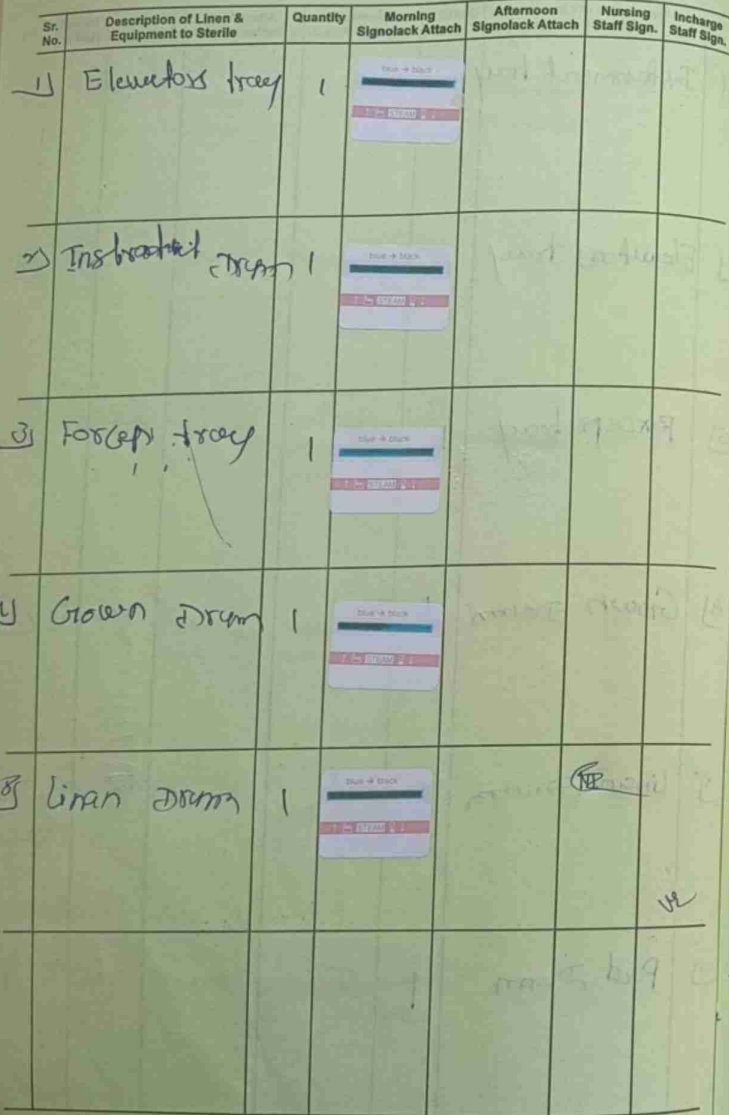 Sr. No. Description of Linen & Equipment to Sterile Quantity Morning Signolack Attach Afternoon Signolack Attach Nursing Staff Sign. Incharge Staff Sign.
1) Elevators tray 1
blue → black
STEAM
2) Drum 1
blue → black
STEAM
3) Forcep tray 1
blue → black
STEAM
4) Gown Drum 1
blue → black
STEAM
5) Linan Drum 1
blue → black
STEAM